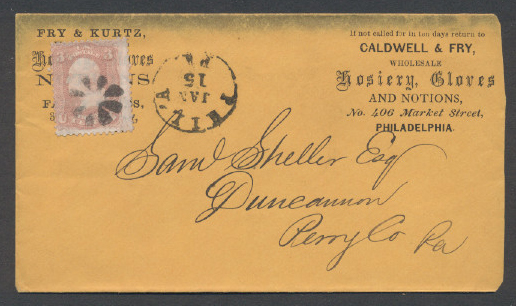 FRY & KURTZ,
NOTIONS,
3
3
PHIL'A
JAN
15
PA
If not called for in ten days return to
CALDWELL & FRY,
WHOLESALE
Hosiery, Gloves
AND NOTIONS,
No. 406 Market Street,
PHILADELPHIA.
Saml Sheller Esq
Duncannon
Perry Co Pa